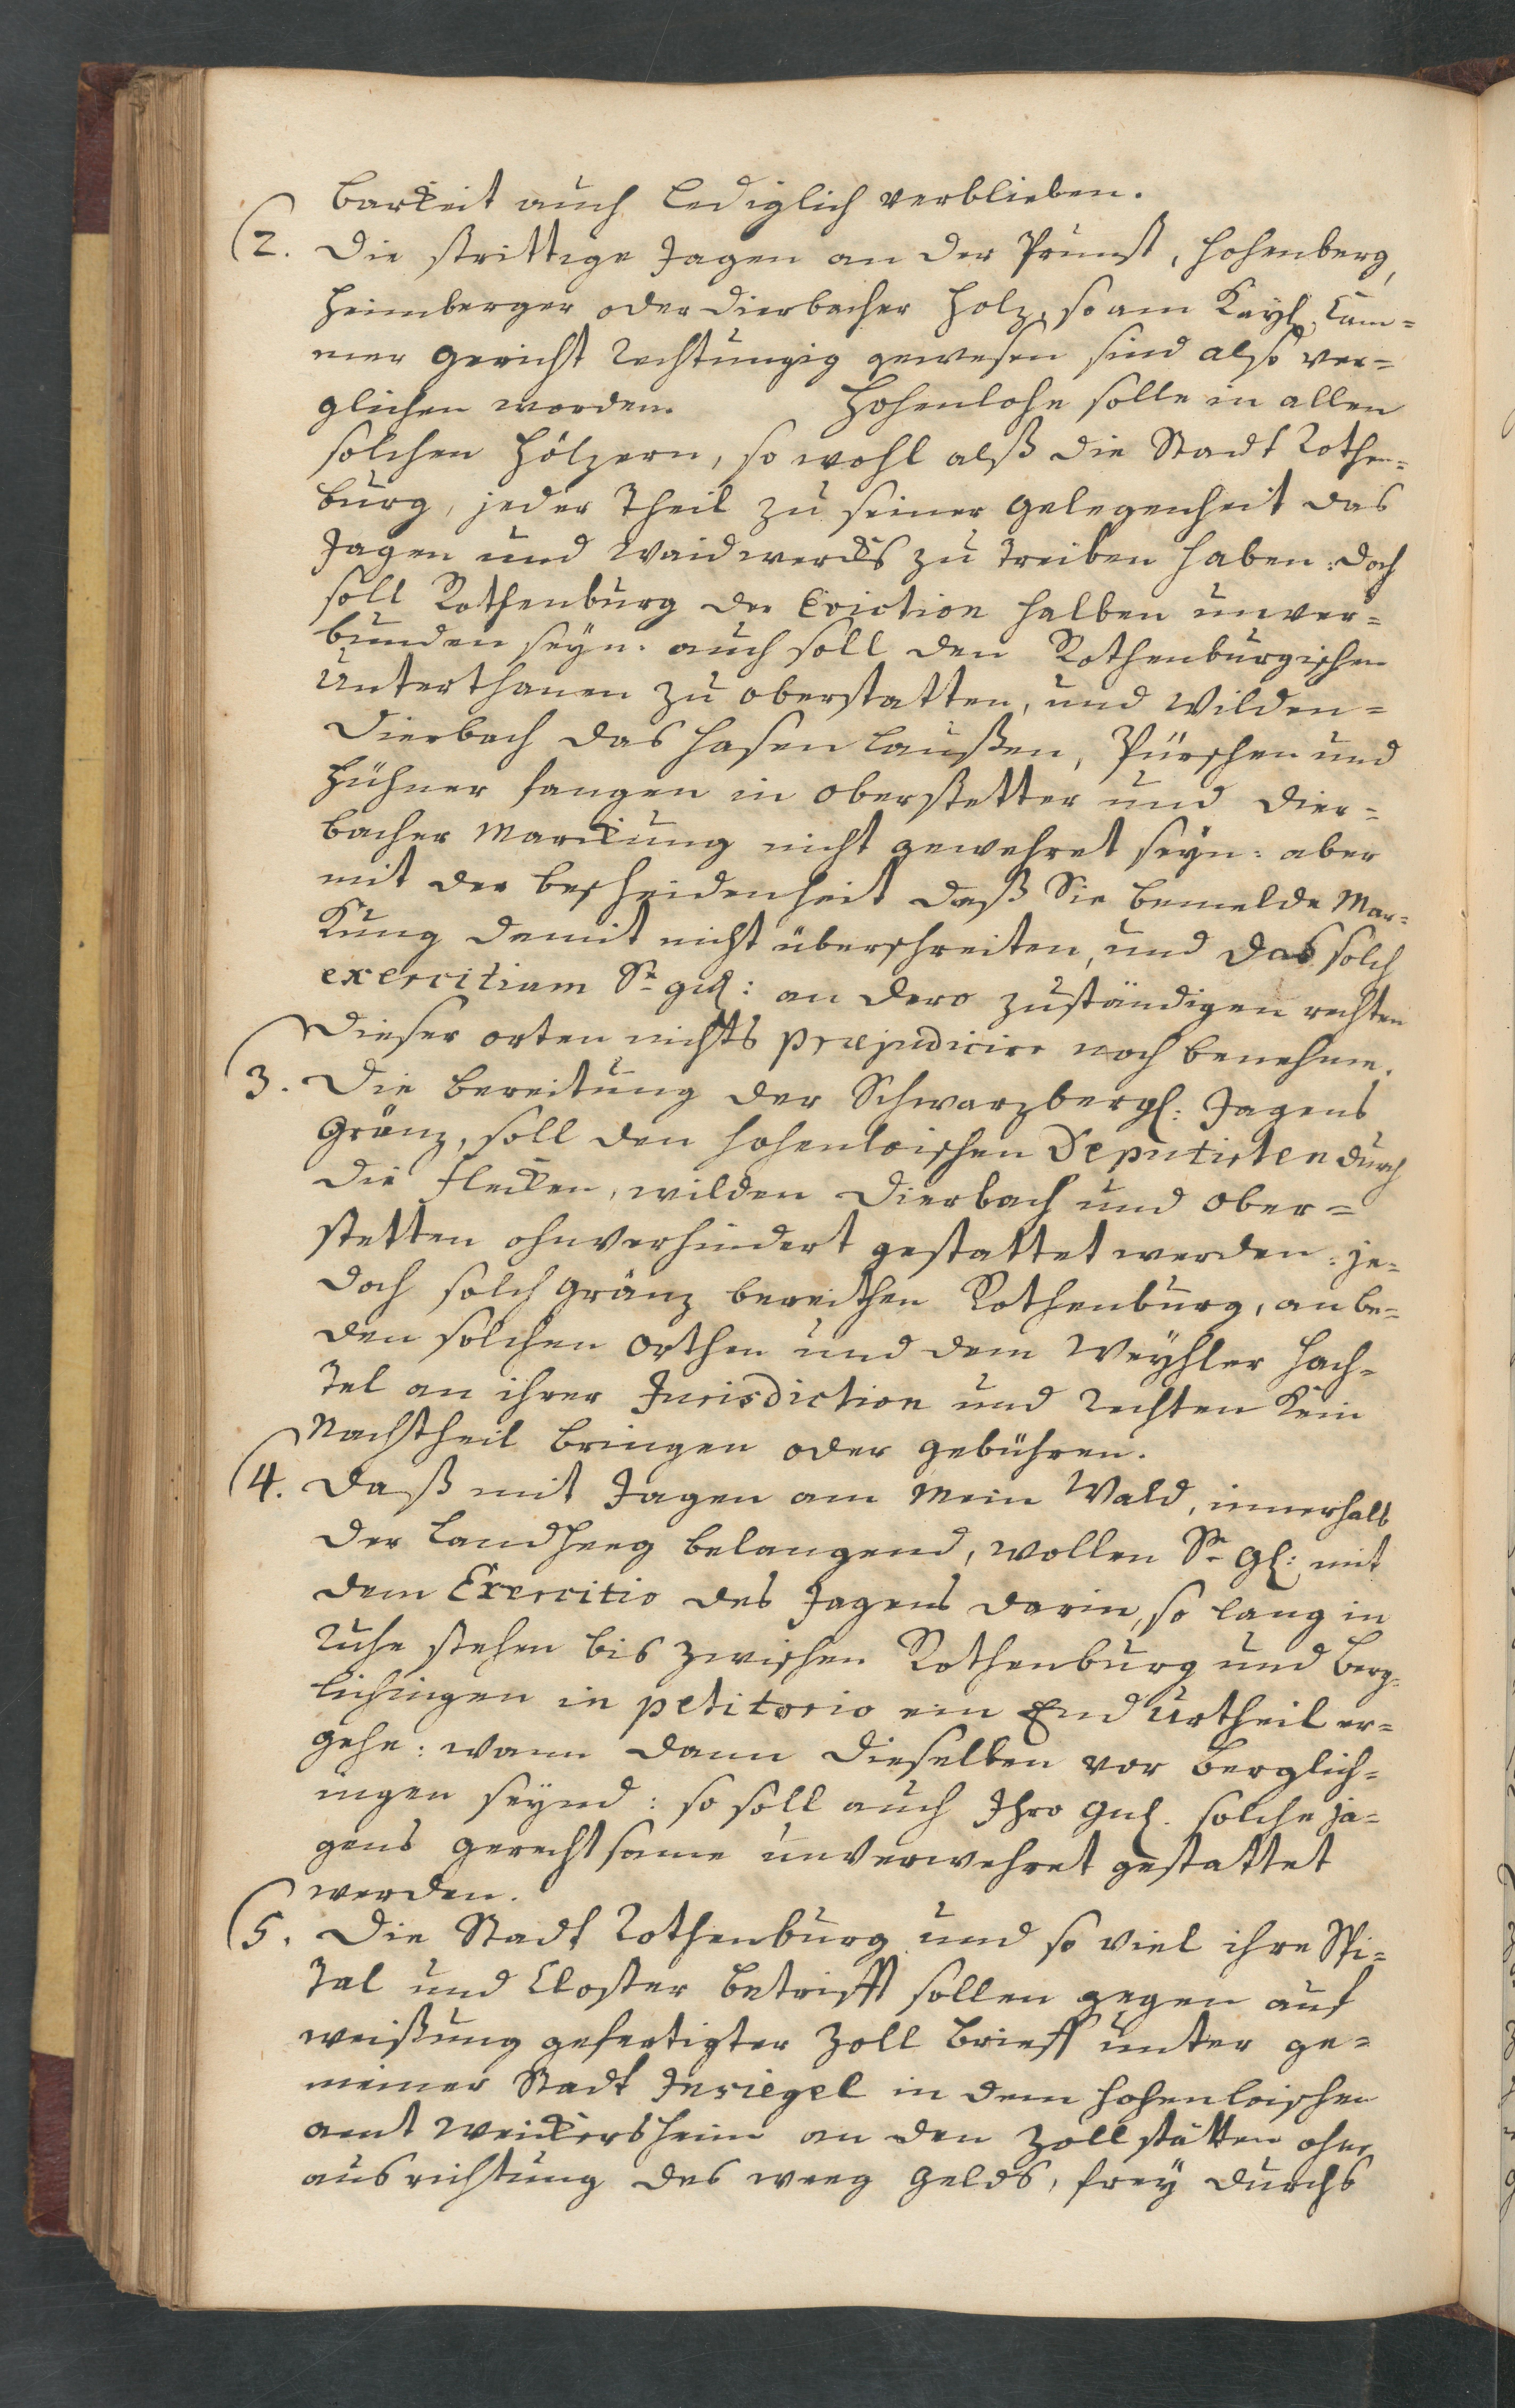 barkeit auch Lediglich verblieben.
2. Die strittige Jagen an der Prunst, Hohenberg,
Heimberger oder Dierbacher Holz, so am Kayßl. Cam=
mer Gericht Rechtungig gewesen sind also ver=
glichen worden. Hohenlohe solle in allen
solchen Hölzern, so wohl alß die Stadt Rothen=
burg, jeder Theil zu seiner Gelegenheit das
Jagen und Waidwercks zu treiben haben: doch
soll Rothenburg der Eviction halben unver=
bunden seyn. auch soll den Rothenburgischen
Unterthanen zu oberstatten, und Wilden=
Dierbach das Hasen Laußen, Pürschen und
Hühner fangen in oberstetter und Dier=
bacher Marckung nicht gewehret seyn: aber
mit der bescheidenheit daß Sie bemelde Mar=
kung damit nicht überschreiten, und das solch
exercitium Sr. gn: an dero zuständigen rechten
dieser orten nichts præjudicire noch benehme.
3. Die bereitung der Schwarzbergl: Jagens
Gränz, soll den Hohenloischen Deputirten durch
die Flecken, wilden Dierbach und Ober=
stetten ohnverhindert gestattet werden: je=
doch solch Gränz bereithen Rothenburg, an be=
den solchen Orthen und dem Weyhler Hach=
tel an ihrer Jurisdiction und Rechten kein
Nachtheil bringen oder gebühren.
4. Daß mit Jagen am Mein Wald, innerhalb
der Landheeg belangend, wollen Sr. Gl: mit
dem Exercitio des Jagens darin, so lang in
Ruhe stehen bis zwischen Rothenburg und Berg=
lichingen in petitorio ein End Urtheil er=
gehe: wann dann dieselben vor Berglich=
ingen seynd: so soll auch Ihro Gnl. solche Ja=
gens gerechtsame unverwehret gestattet
werden.
5. Die Stadt Rothenburg und so viel ihre Spi=
tal und Closter betrifft sollen gegen auf
weißung gefertigter Zoll Brieff unter ge=
meiner Stadt Insiegel in dem Hohenloischen
amt Weickersheim an den Zollstätten ohne
ausrichtung des weeg Gelds, frey durchs